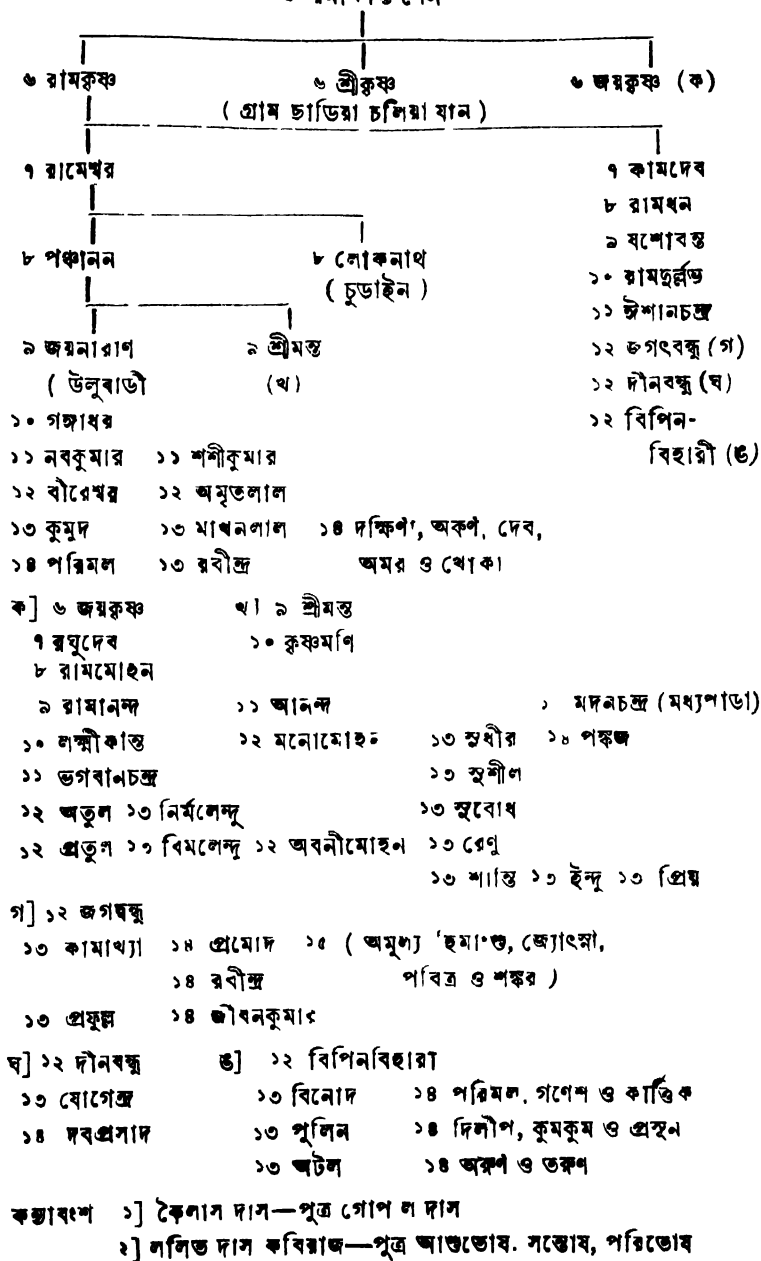 ৬ রামকৃষ্ণ ৬ শ্রীকৃষ্ণ ৬ জয়কৃষ্ণ (ক)
( গ্রাম ছাড়িয়া চলিয়া যান )
৭ রামেশ্বর ৭ কামদেব
৮ রামধন
৮ পঞ্চানন ৮ লোকনাথ ৯ যশোবন্ত
( চুড়াইন ) ১০ রামদুর্ল্লভ
১১ ঈশানচন্দ্র
৯ জয়নারাণ ৯ শ্রীমন্ত ১২ জগৎবন্ধু (গ)
( উলুবাড়ী (খ) ১২ দীনবন্ধু (ঘ)
১০ গঙ্গাধর ১২ বিপিন-
১১ নবকুমার ১১ শশীকুমার বিহারী (ঙ)
১২ বীরেশ্বর ১২ অমৃতলাল
১৩ কুমুদ ১৩ মাখনলাল ১৪ দক্ষিণা, অরুণ, দেব,
১৪ পরিমল ১৩ রবীন্দ্র অমর ও খোকা
ক] ৬ জয়কৃষ্ণ খ] ৯ শ্রীমন্ত
৭ রঘুদেব ১০ কৃষ্ণমণি
৮ রামমোহন
৯ রামানন্দ ১১ আনন্দ মদনচন্দ্র (মধ্যপাড়া)
১০ লক্ষ্মীকান্ত ১২ মনোমোহন ১৩ সুধীর ১৪ পঙ্কজ
১১ ভগবানচন্দ্র ১৩ সুশীল
১২ অতুল ১৩ নির্মলেন্দু ১৩ সুবোধ
১২ প্রতুল ১৩ বিমলেন্দু ১২ অবনীমোহন ১৩ রেণু
১৩ শান্তি ১৩ ইন্দু ১৩ প্রিয়
গ] ১২ জগদ্বন্ধু
১৩ কামাখ্যা ১৪ প্রমোদ ১৫ ( অমূল্য হিমাংশু, জ্যোৎস্না,
১৪ রবীন্দ্র পবিত্র ও শঙ্কর )
১৩ প্রফুল্ল ১৪ জীবনকুমার
ঘ] ১২ দীনবন্ধু ঙ] ১২ বিপিনবিহারী
১৩ যোগেন্দ্র ১৩ বিনোদ ১৪ পরিমল, গণেশ ও কার্ত্তিক
১৪ দেবপ্রসাদ ১৩ পুলিন ১৪ দিলীপ, কুমকুম ও প্রসূন
১৩ অটল ১৪ অরুণ ও তরুণ
কন্যাবংশ ১] কৈলাস দাস—পুত্র গোপাল দাস
২] ললিত দাস কবিরাজ—পুত্র আশুতোষ, সন্তোষ, পরিতোষ